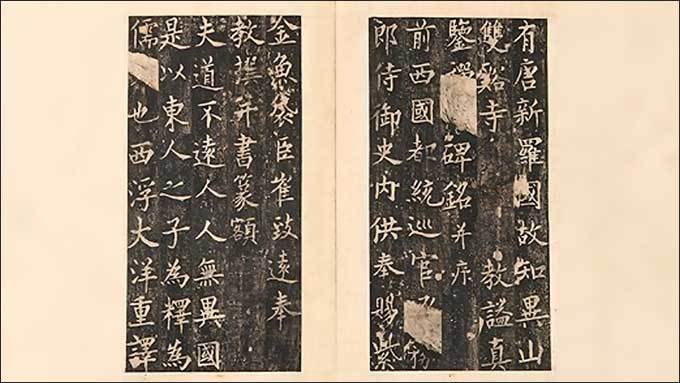 有唐新羅國故知異山
雙谿寺 教謚真
鑒禪碑銘并序
前西國都統巡官務
郎侍御史內供奉賜紫
金魚袋臣崔致遠奉
教撰并書篆額
夫道不遠人人無異國
是以東人之子為釋為
儒也西浮大洋重譯